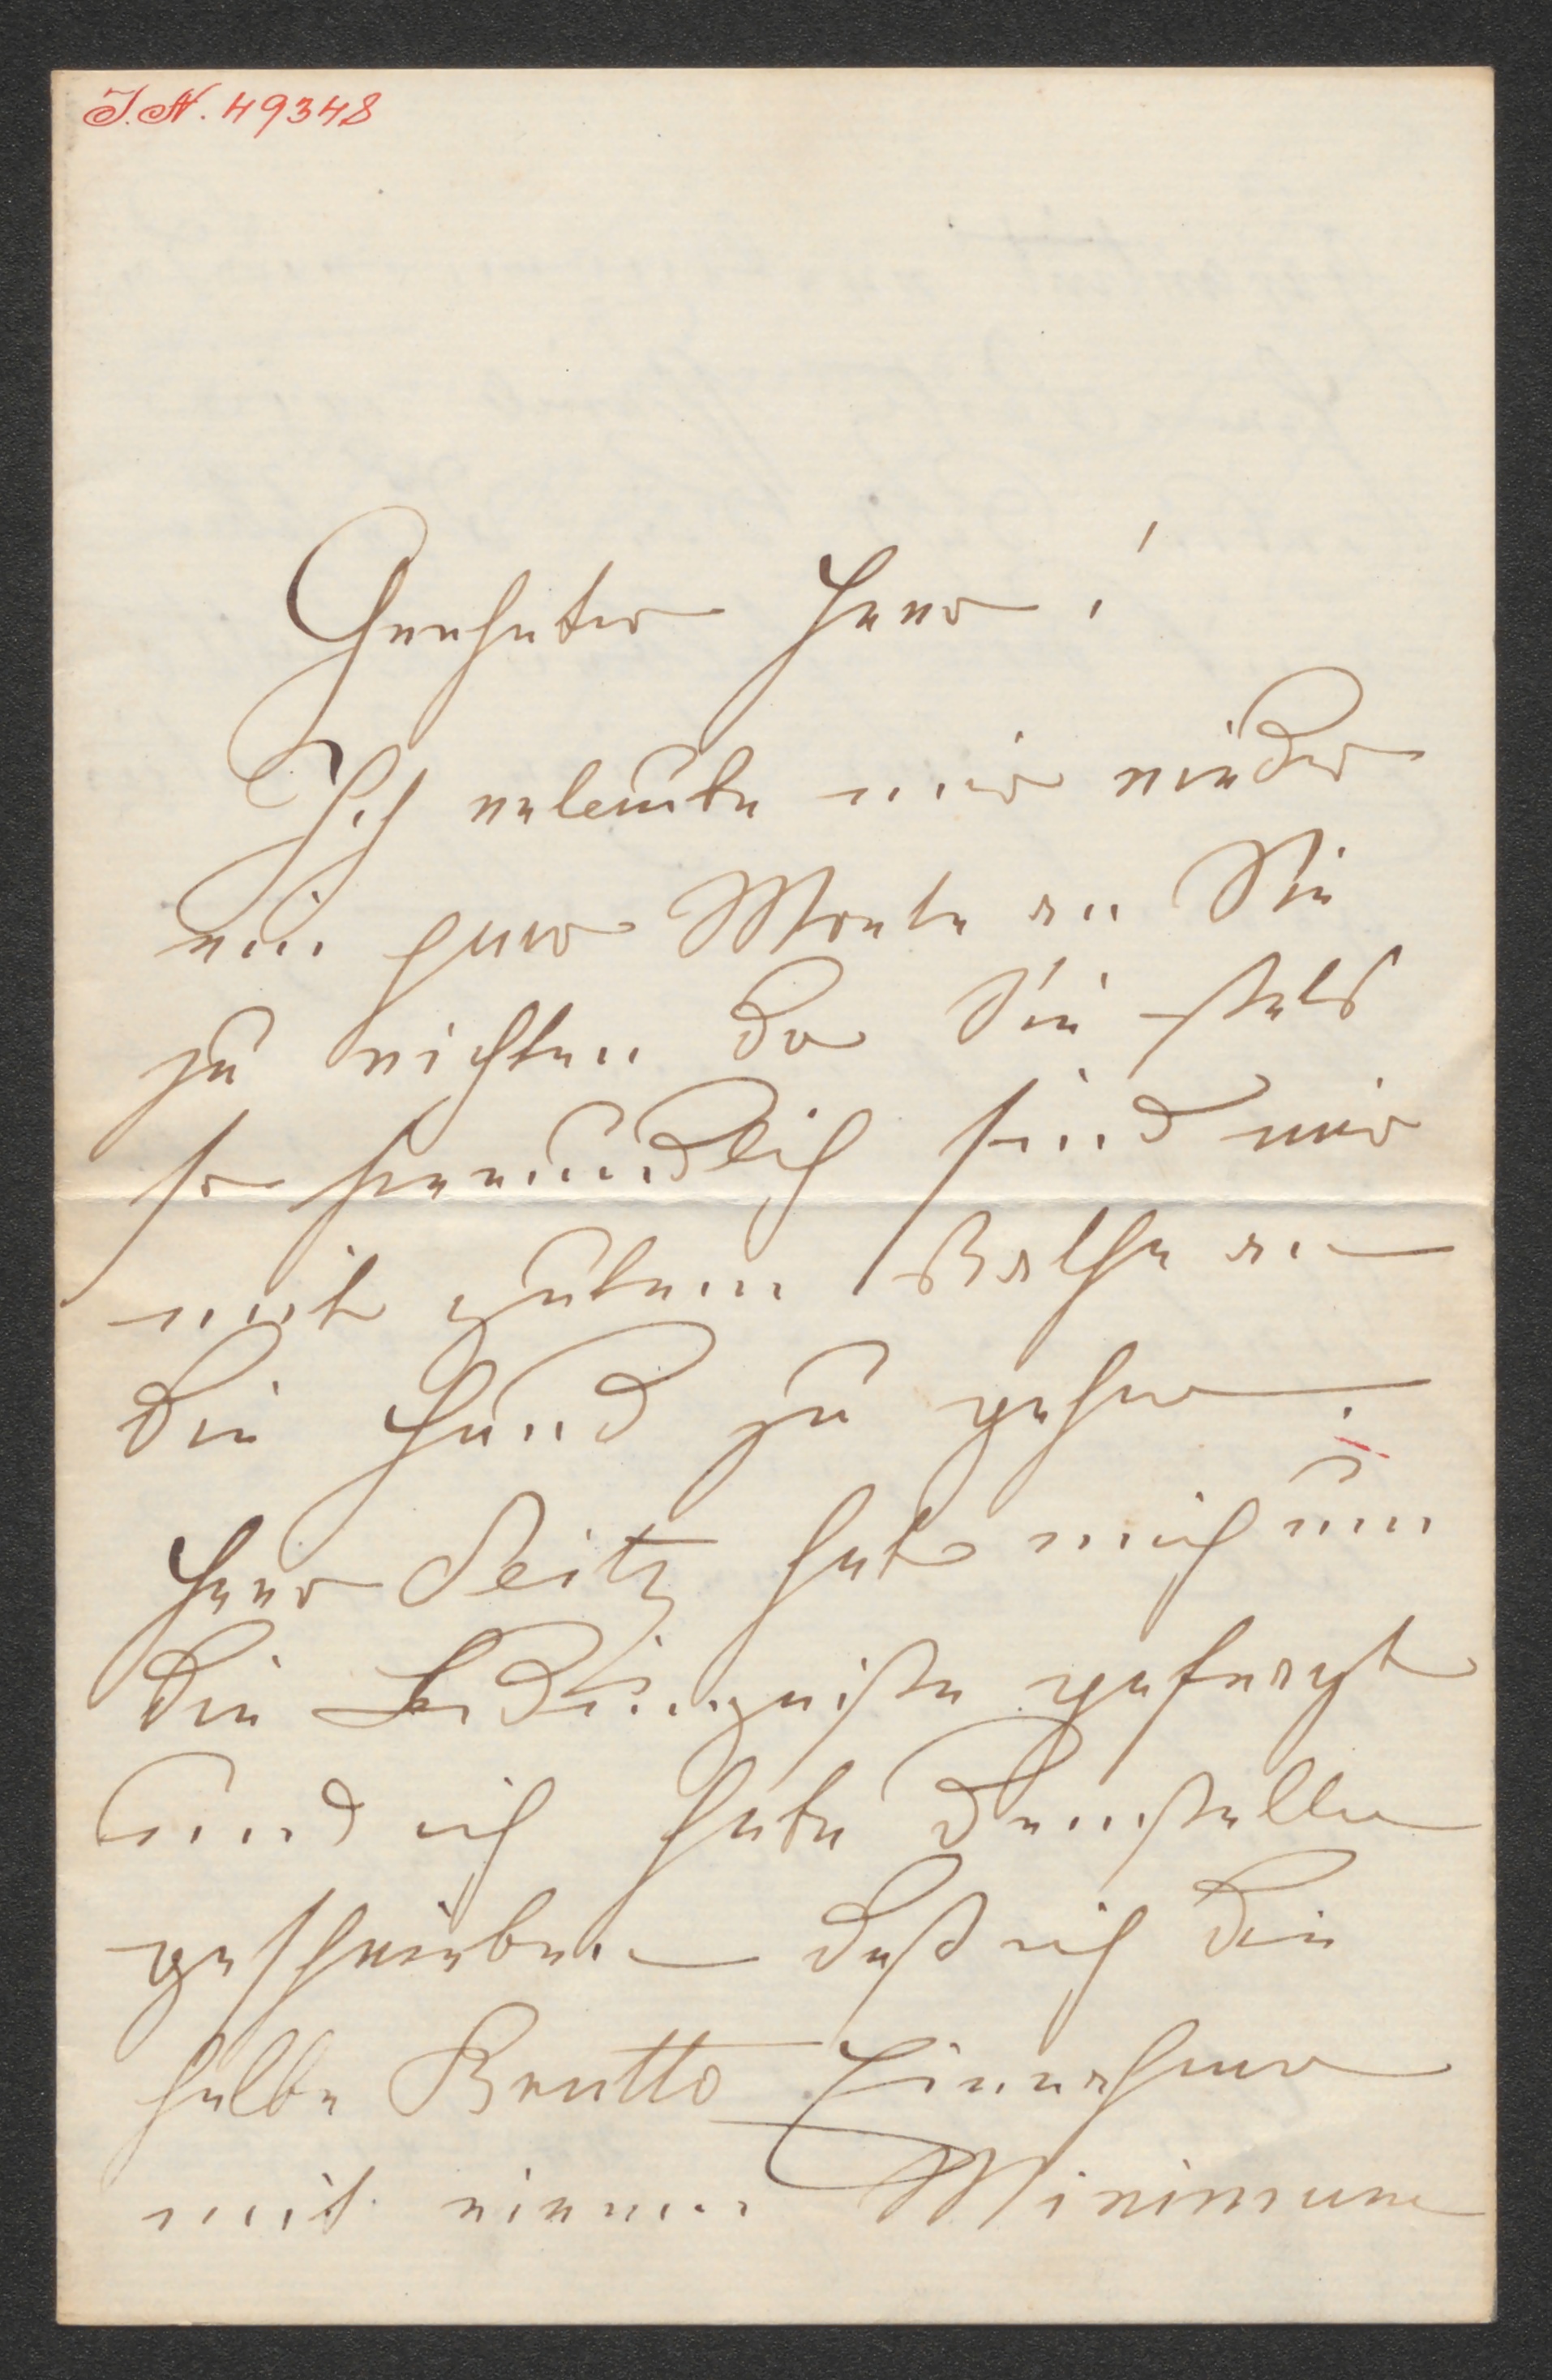 I.N. 49348
Geehrter Herr!
Ich erlaube mir wieder
ein paar Worte an Sie
zu richten da Sie stets
so freundlich sind mir
mit gutem Rathe an
die Hand zu gehen.
Herr Seitz hat mich um
die Bedingniße gefragt
und ich habe demselben
geschrieben daß ich die
halbe Brutto Einnahme
mit einem Minimum